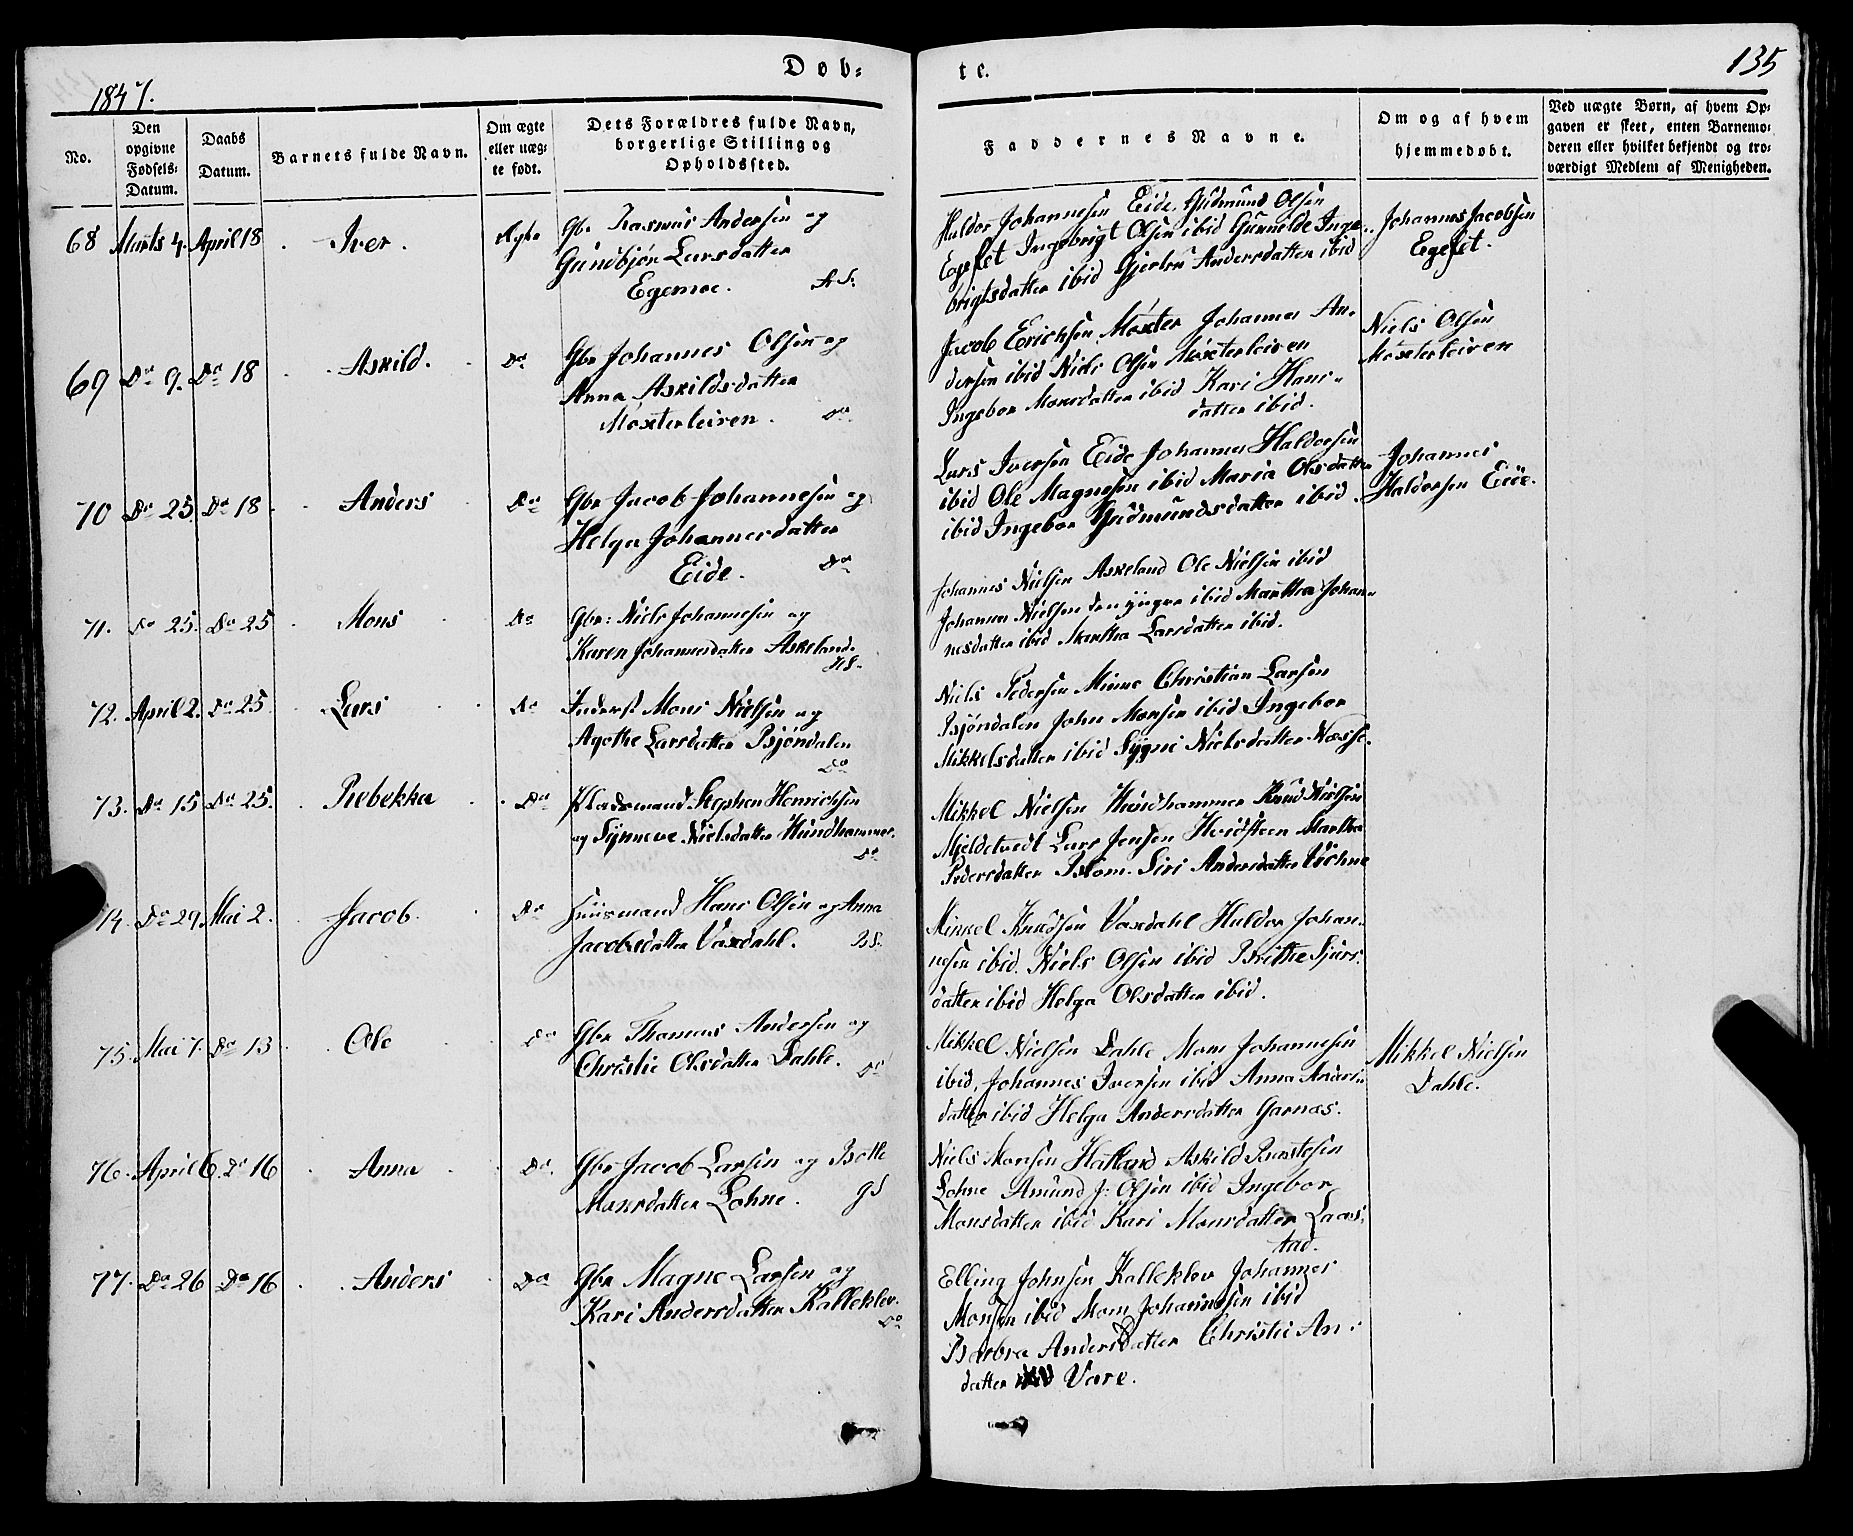 Døb-
te.
135
1847.
No.
Den opgivne Fødsels-Datum.
Daabs Datum.
Barnets fulde Navn.
Om ægte eller uæg-te født.
Dets Forældres fulde Navn, borgerlige Stilling og Opholdssted.
Faddernes Navne.
Om og af hvem hjemmedøbt.
Ved uægte Børn, af hvem Op-gaven er skeet, enten Barnemo-deren eller hvilket bekjendt og tro-værdigt Medlem af Menigheden.
68 Marts 4. April 18 Iver. Ægte
Gbr Rasmus Andersen og
Gundbjør Larsdatter
Egemoe.
Haldor Johannesen Eide, Gudmund Olsen
Egeset Ingebrigt Olsen ibid Gunnelde Inge-
brigtsdatter ibid Gjertru Andersdatter ibid
Johannes Jacobsen
Egeset.
69 Do 9. Do 18 Askild. Do
Gbr Johannes Olsen og
Anna Askildsdatter
Moxterleiren. Do
Jacob Erichsen Moxter Johannes An-
dersen ibid Niels Olsen Moxterleiren
Ingebor Monsdatter ibid Kari Hans-
datter ibid.
Niels Olsen
Moxterleiren
70 Do 25. Do 18 Anders Do
Gbr Jacob Johannesen og
Helga Johannesdatter
Eide. Do
Lars Iversen Eide Johannes Haldorsen
ibid Ole Magnesen ibid Maria Olsdatter
ibid Ingebor Gudmundsdatter ibid.
Johannes
Haldorsen Eide.
71. Do 25. Do 25 Mons Do
Gbr: Niels Johannesen og
Karen Johannesdatter Askeland.
HS.
Johannes Nielsen Askeland Ole Nielsen ibid
Johannes Nielsen den yngre ibid Martha Johan-
nesdatter ibid Martha Larsdatter ibid.
72. April 2. Do 25 Lars Do
Inderst Mons Nielsen og
Agothe Larsdatter Bjøndalen
Do
Niels Pedersen Minne Christian Larsen
Bjøndalen John Monsen ibid Ingebor
Mikkelsdatter ibid Sygni Nielsdatter Næsse.
73. Do 15 Do 25. Rebekka Do
Pladsmand Stephen Henrichsen
og Synneve Nielsdatter Hundhammer.
Do
Mikkel Nielsen Hundhammer Knud Nielsen
Mjeldetvedt Lars Jensen Hvidsteen Martha
Pedersdatter Blom. Siri Andersdatter
74. Do 29. Mai 2. Jacob. Do
Huusmand Hans Olsen og Anna
Jacobsdatter Vaxdahl. BS.
Mikkel Knudsen Vaxdahl Haldor Johan-
nesen ibid. Niels Olsen ibid Brithe Sjurs-
datter ibid Helga Olsdatter ibid.
75. Mai 7. Do 13 Ole Do
Gbr Thomas Andersen og
Christie Olsdatter Dahle. Do
Mikkel Nielsen Dahle Mons Johannesen
ibid, Johannes Iversen ibid Anna Anders-
datter ibid Helga Andersdatter Garnæs.
Mikkel Nielsen
Dahle.
76. April 6. Do 16 Anna Do.
Gbr Jacob Larsen og Botle
Monsdatter Lohne. GS
Niels Monsen Hatland Askild
Lohne Amund J: Olsen ibid Ingebor
Monsdatter ibid Kari Monsdatter Laas-
tad.
77. Do 26 Do 16 Anders Do
Gbr Magne Larsen og
Kari Andersdatter Kalleklev.
Do
Elling Johnsen Kalleklev Johannes
Monsen ibid Mons Johannesen ibid
Barbra Andersdatter Christie An-
datter Vare.